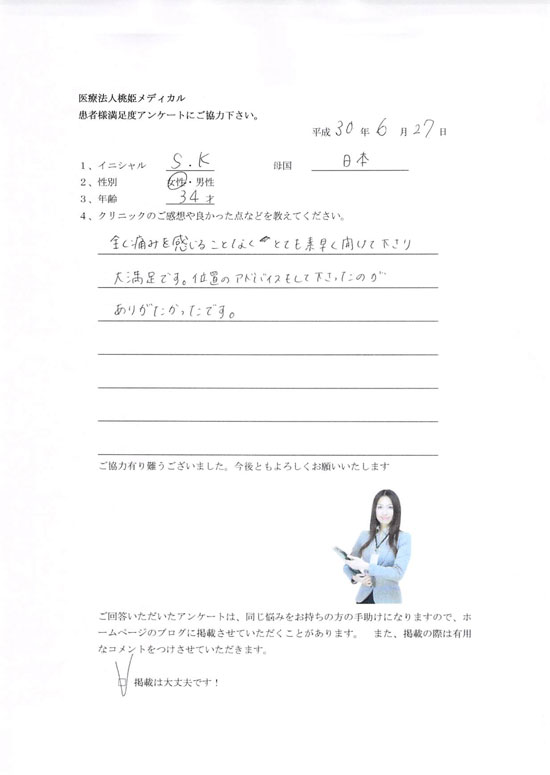 医療法人桃姫メディカル
患者様満足度アンケートにご協力下さい。
平成 30 年 6 月 27 日
1、イニシャル S.K 母国 日本
2、性別 女性・男性
3、年齢 34 才
4、クリニックのご感想や良かった点などを教えてください。
全く痛みを感じることなくとても素早く開けて下さり
大満足です。位置のアドバイスもして下さったのが
ありがたかったです。
ご協力有り難うございました。今後ともよろしくお願いいたします
ご回答いただいたアンケートは、同じ悩みをお持ちの方の手助けになりますので、ホ
ームページのブログに掲載させていただくことがあります。 また、掲載の際は有用
なコメントをつけさせていただきます。
□ 掲載は大丈夫です！